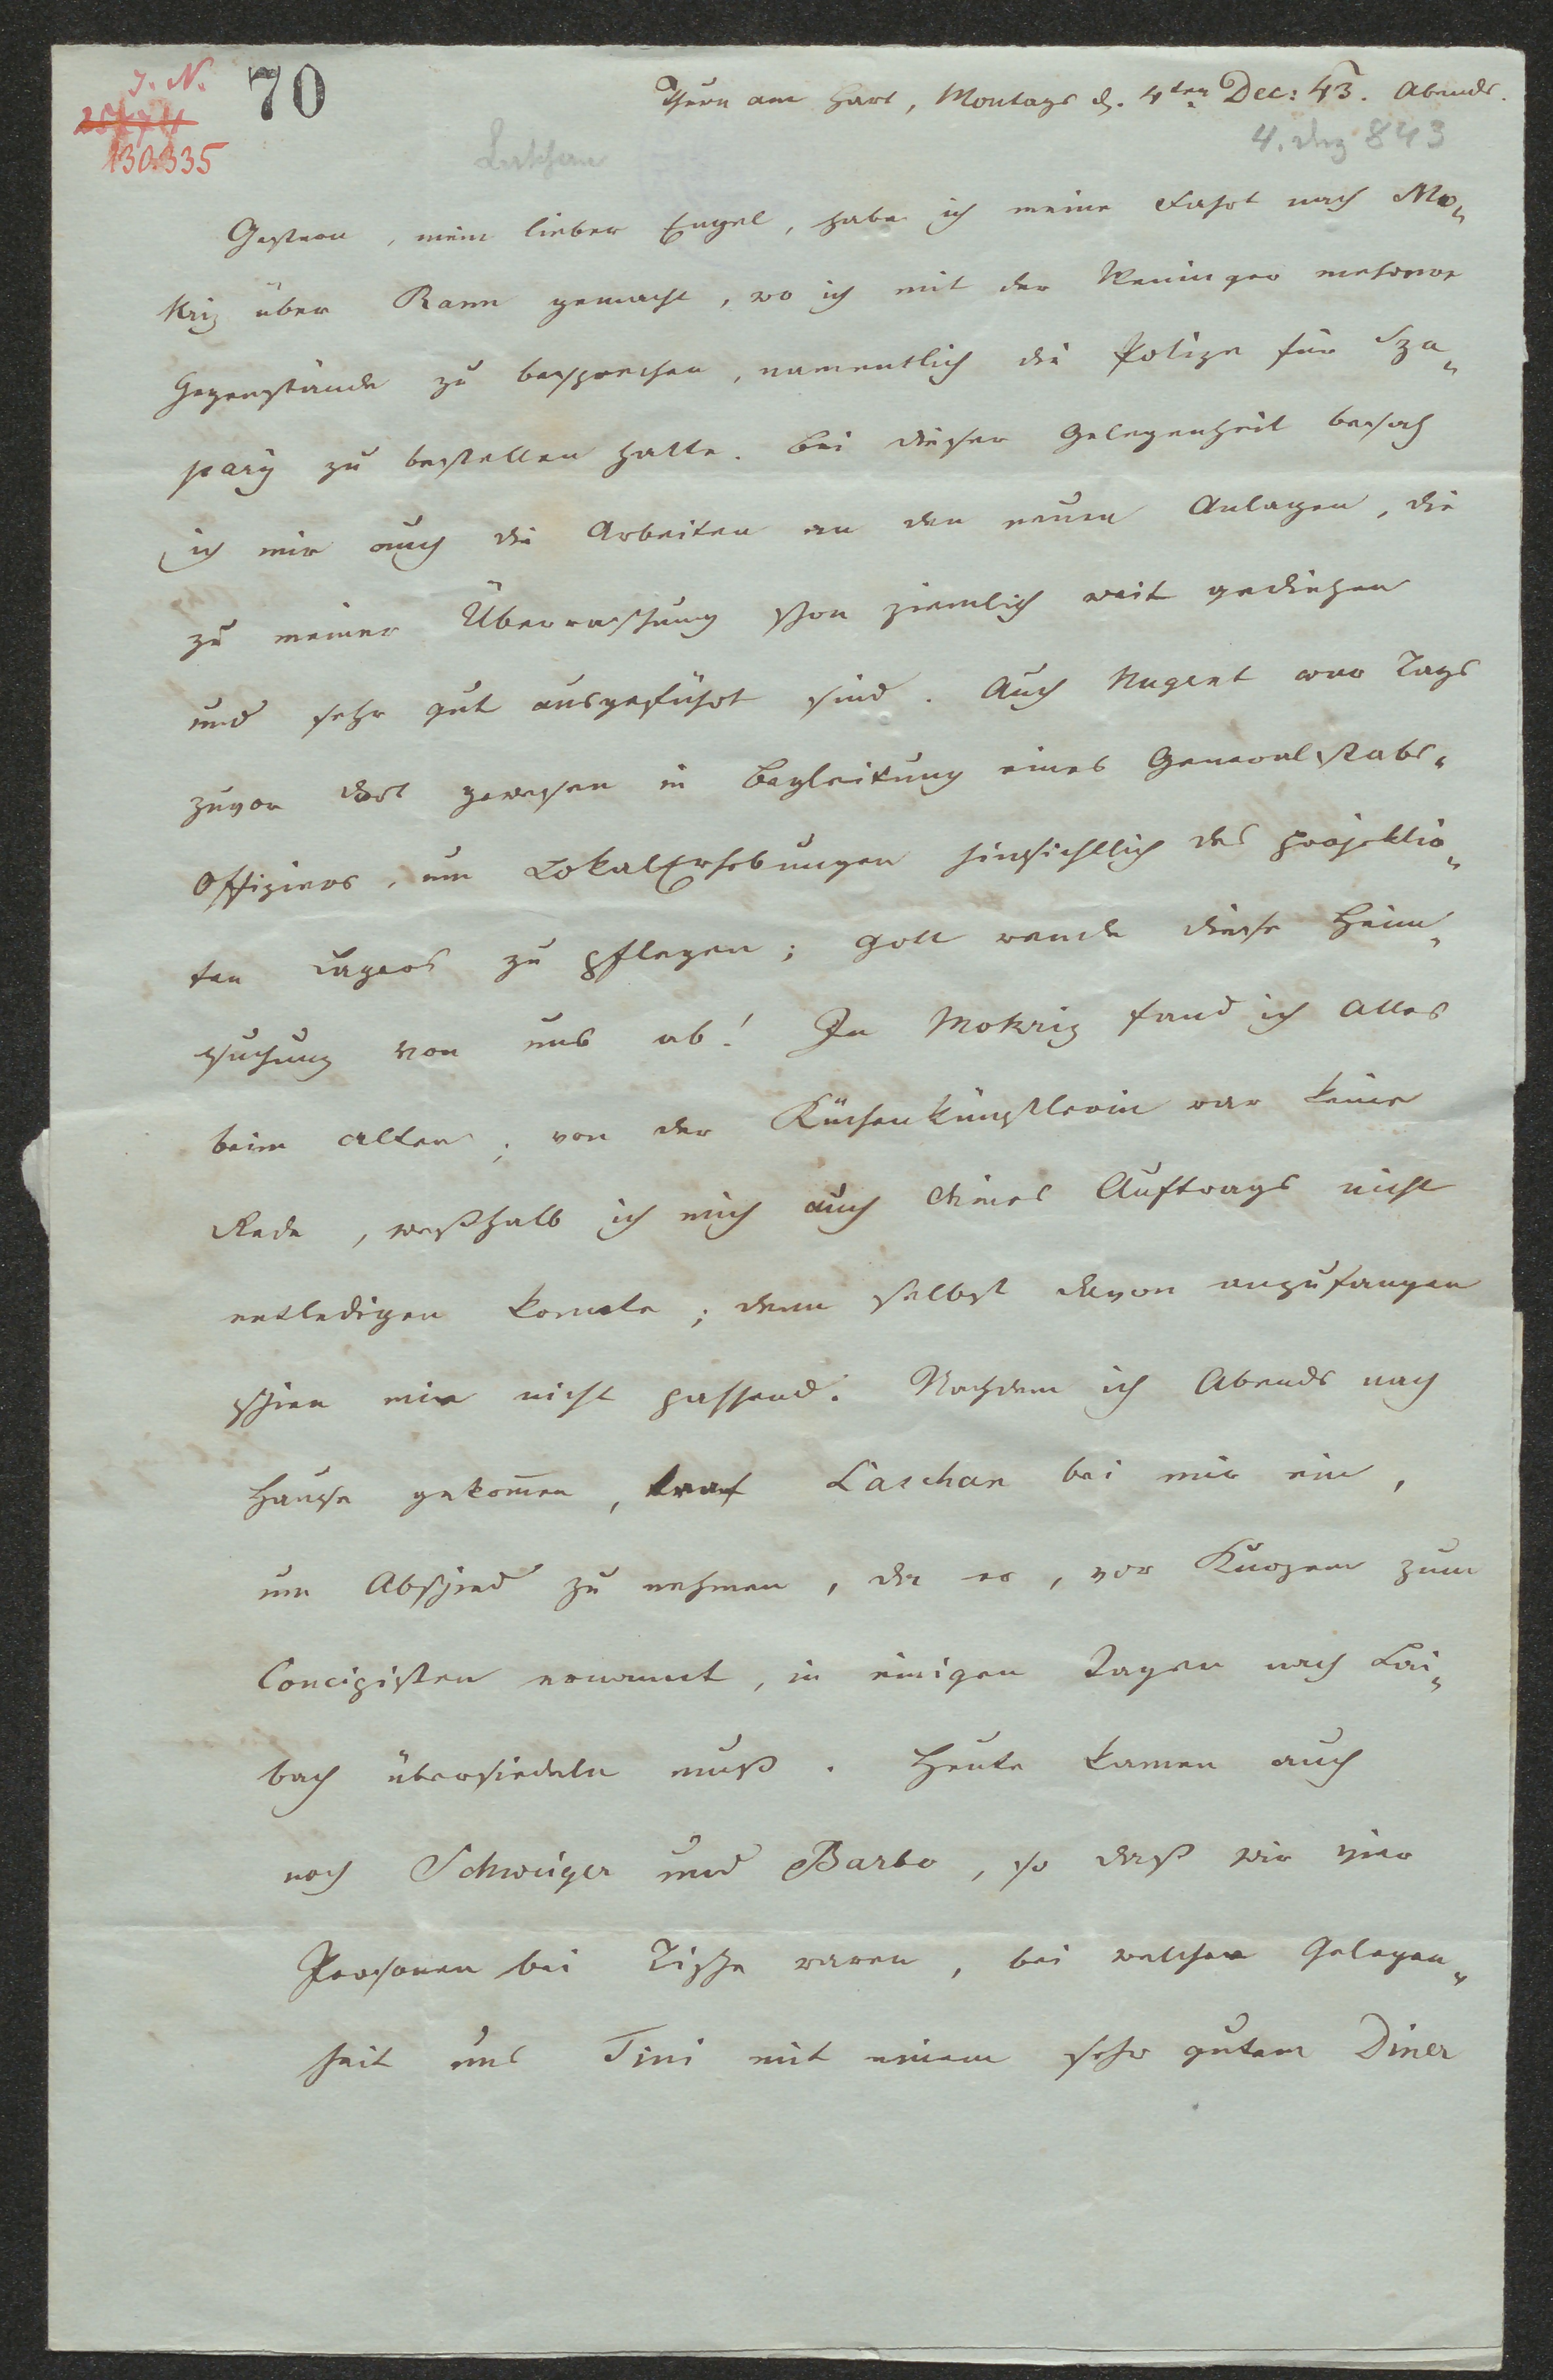 J. N.
130.335
70
Thurn am Hart, Montags d. 4ten Dec: 43. Abends.
4. Dez 843
Gestern, mein lieber Engel, habe ich meine Fahrt nach Mo„
kriz über Rann gemacht, wo ich mit der Weninger mehrere
Gegenstände zu besprechen, namentlich die Polizze für Sza„
pary zu bestellen hatte. Bei dieser Gelegenheit besah
ich mir auch die Arbeiten an den neuen Anlagen, die
zu meiner Überraschung schon ziemlich weit gediehen
und sehr gut ausgeführt sind. Auch Nugent war Tags
zuvor dort gewesen in Begleitung eines Generalstabs„
Offiziers, um LokalErhebungen hinsichtlich des projektir„
ten Lagers zu pflegen; Gott wende diese Heim„
suchung von uns ab! In Mokriz fand ich Alles
beim Alten; von der Küchenkünstlerin war keine
Rede, weßhalb ich mich auch Deines Auftrags nicht
entledigen konnte; denn selbst davon anzufangen
schien mir nicht passend. Nachdem ich Abends nach
Hause gekom̅en, traf Laschan bei mir ein,
um Abschied zu nehmen, da er, vor Kurzem zum
Concipisten ernannt, in einigen Tagen nach Lai„
bach übersiedeln muß. Heute kamen auch
noch Schweiger und Barbo, so daß wir vier
Personen bei Tische waren, bei welcher Gelegen„
heit uns Tini mit einem sehr gutem Diner